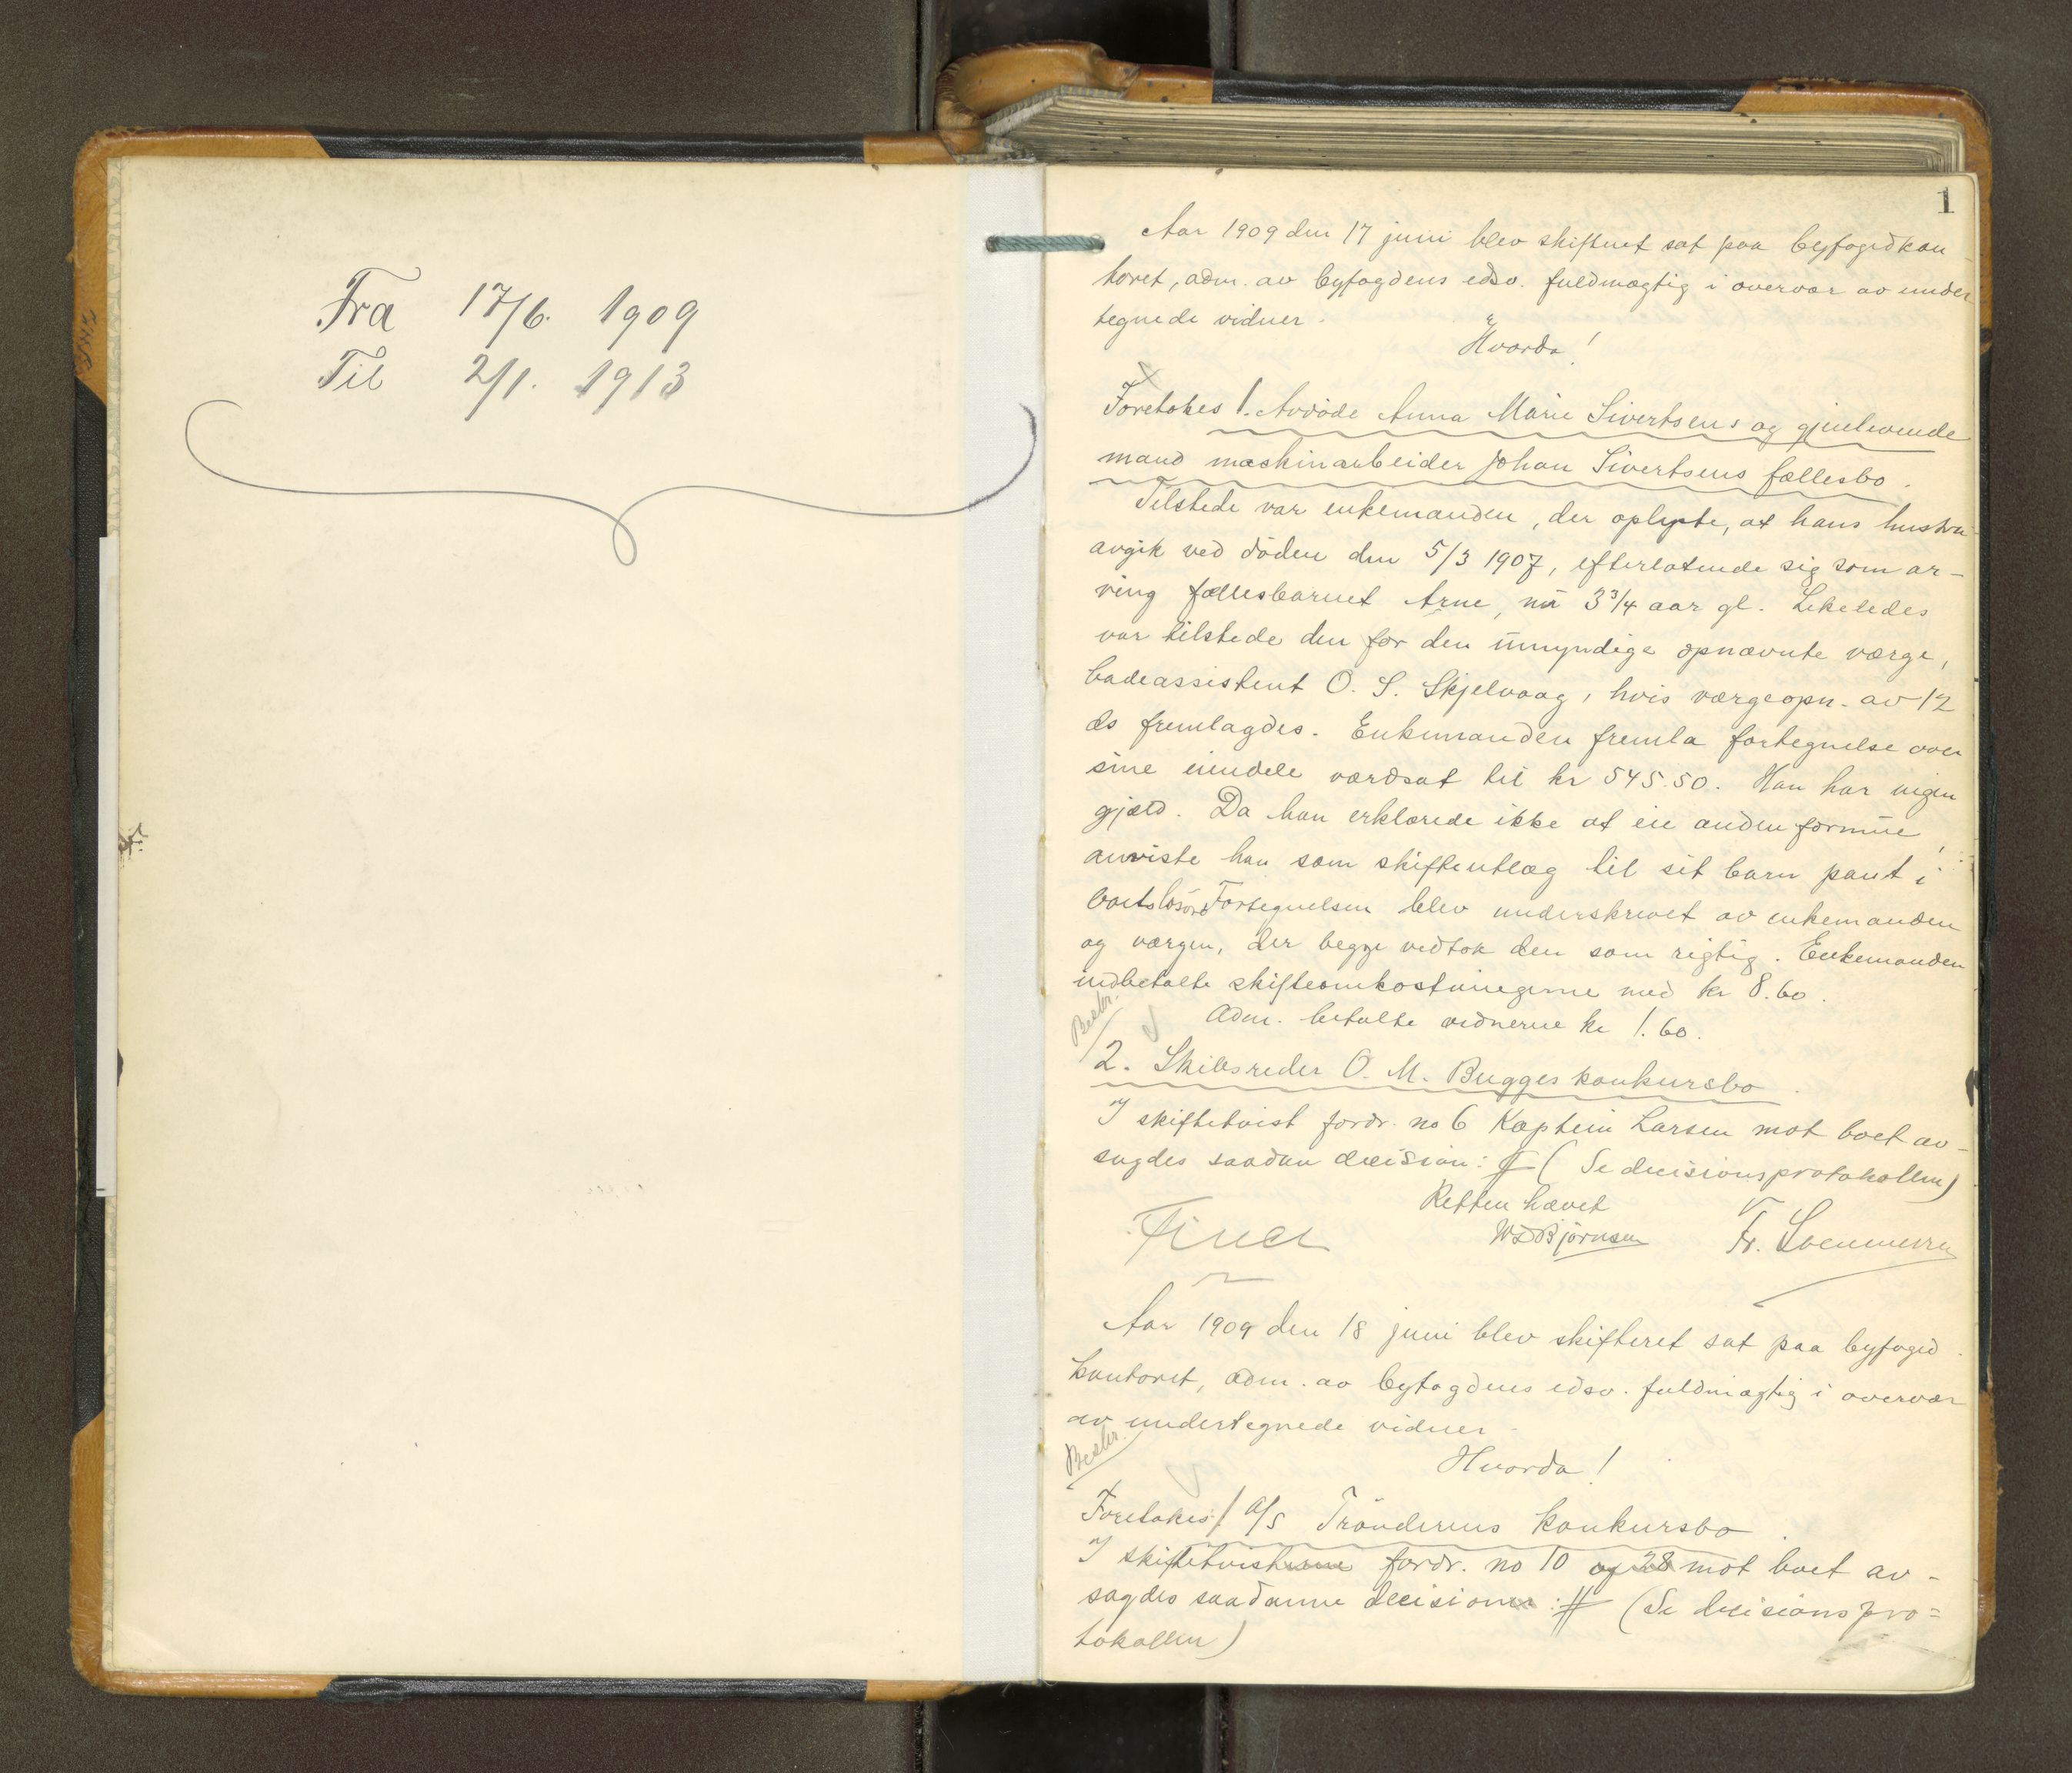 Fra 17/6. 1909
Til 2/1. 1913
1
Aar 1909 den 17 juni blev skifteret sat paa byfogedkon
toret, adm. av byfogdens edsv. fuldmægtig i overvær av under
tegnede vidner.
Hvorda!
Foretokes 1. Avdøde Anna Marie Sivertsens og gjenlevende
mand maskinarbeider Johan Sivertsens fællesbo.
Tilstede var enkemanden, der oplyste, at hans hustru
avgik ved döden den 5/3 1907, efterlatende sig som ar-
ving fællesbarnet Arne, nu 3 3/4 aar gl. Likeledes
var tilstede den for den umyndige opnævnte værge,
badeassistent O. S. Skjelvaag, hvis værgeopn. av 12
ds fremlagdes. Enkemanden fremla fortegnelse over
sine eiendele værdsat til kr 545.50. Han har ingen
gjæld. Da han erklærede ikke at eie anden formue,
anviste han som skifteutlæg til sit barn pant i
boets lösöre Fortegnelsen blev underskrevet av enkemanden
og værgen, der begge vedtok den som rigtig. Enkemanden
indbetalte skifteomkostningerne med kr 8.60.
Adm. betalte vidnerne kr 1.60.
Beskr.
2. Skibsreder O. M. Bugges konkursbo.
I skiftetvist fordr. no 6 Kaptein Larsen mot boet av-
sagdes saadan decision: # (Se decisionsprotokollen)
Retten hævet
W D Björnsen
Aar 1909 den 18 juni blev skifteret sat paa byfoged
kontoret, adm. av byfogdens edsv. fuldmægtig i overvær
av undertegnede vidner.
Beskr.
Hvorda!
Foretokes: 1 A/S Trönderens konkursbo.
I skiftetvisterne fordr. no 10 og 28 mot boet av-
sagdes saadanne decisioner: # (Se decisionspro=
tokollen)